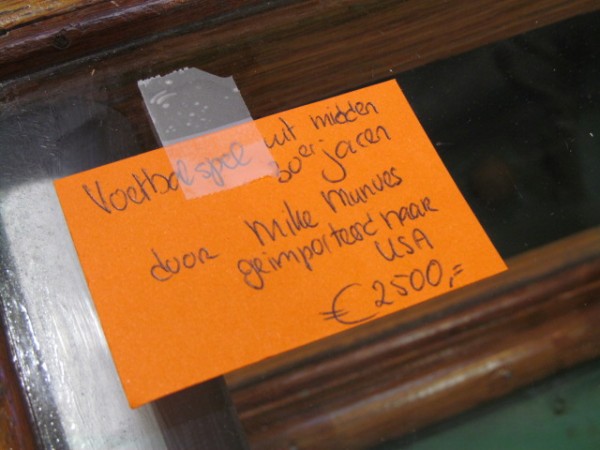 Voetbalspel uit midden
30er jaren
door Mike Munves
geïmporteerd naar
USA
€ 2500,=